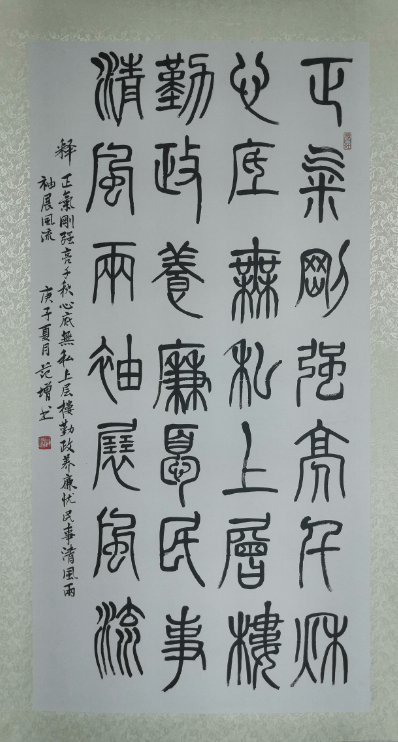 正气剛强亮千秋
心底無私上層樓
勤政養廉憂民事
清風兩袖展風流
釋 正氣剛强亮千秋心底無私上层楼勤政养廉忧民事清風兩
袖展風流 庚子夏月范增书